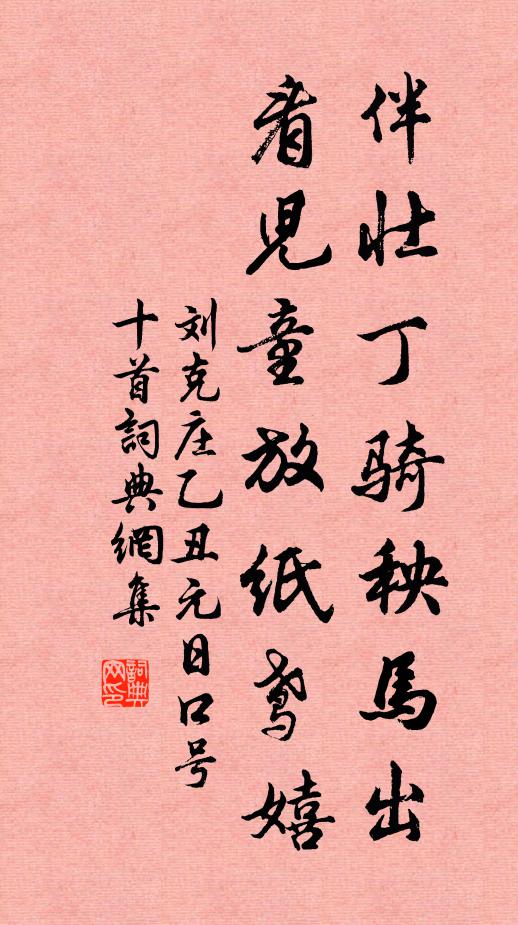 伴壮丁骑秧馬出
看兒童放纸鸢嬉
刘克庄乙丑元日口号
十首詞典網集
詞典网印